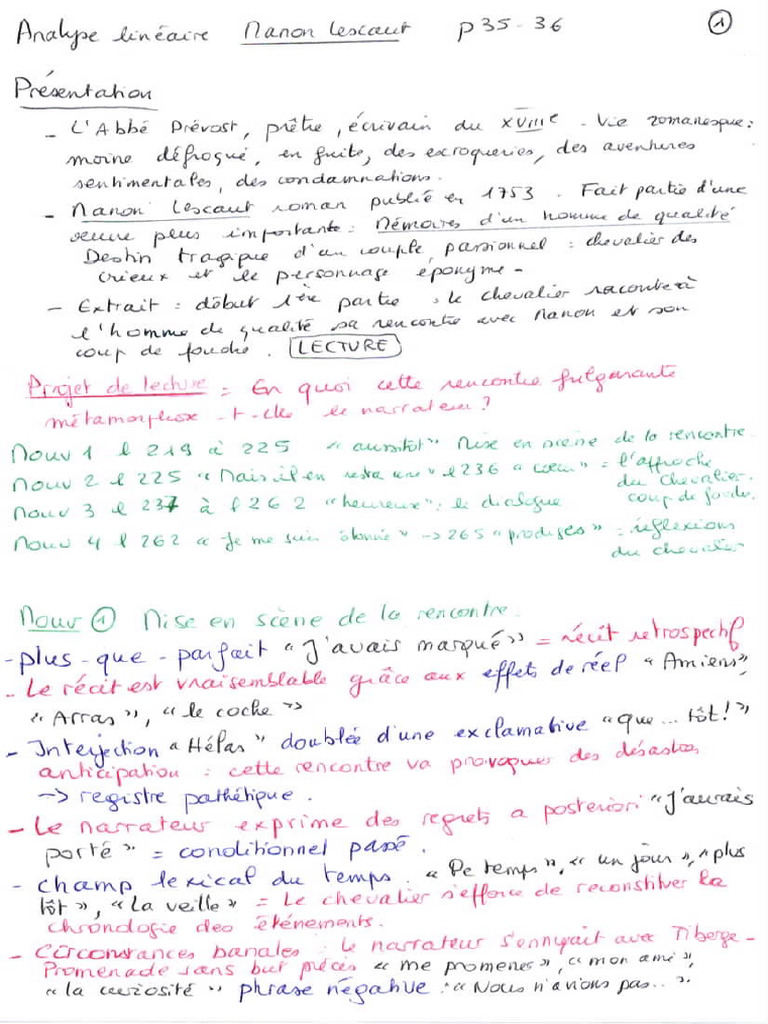 Analyse linéaire Manon Lescaut p 35-36 ①
Présentation
- L'Abbé Prévost, prêtre, écrivain du XVIIIe. Vie romanesque :
moine défroqué, en fuite, des escroqueries, des aventures
sentimentales, des condamnations.
- Manon Lescaut roman publié en 1753. Fait partie d'une
œuvre plus importante : Mémoires d'un homme de qualité
Destin tragique d'un couple, passionnel : chevalier des
Grieux et le personnage éponyme -
- Extrait : début 1ère partie : le chevalier raconte à
l'homme de qualité sa rencontre avec Manon et son
coup de foudre. LECTURE
Projet de lecture = En quoi cette rencontre fulgurante
métamorphose-t-elle le narrateur ?
Mouv 1 l 219 à 225 « aussitôt » Mise en scène de la rencontre
Mouv 2 l 225 « Mais il en resta une » l 236 « cœur » = l'approche
du chevalier.
coup de foudre.
Mouv 3 l 237 à l 262 « heureux » : le dialogue
Mouv 4 l 262 « Je me suis étonné » -> 265 « prodiges » = réflexions
du chevalier
Mouv ① Mise en scène de la rencontre.
- plus-que-parfait « J'avais marqué » = récit rétrospectif
- Le récit est vraisemblable grâce aux effets de réel « Amiens »,
« Arras », « le coche »
- Interjection « Hélas » doublée d'une exclamative « que ... tôt ! »
anticipation : cette rencontre va provoquer des désastres
-> registre pathétique.
- Le narrateur exprime des regrets a posteriori « J'aurais
porté » = conditionnel passé.
- champ lexical du temps. « De temps », « un jour », « plus
tôt », « La veille » = Le chevalier s'efforce de reconstituer la
chronologie des événements.
- Circonstances banales : le narrateur s'ennuyait avec Tiberge -
Promenade sans but précis « me promener », « mon ami »,
« la curiosité » phrase négative : « Nous n'avions pas... ».